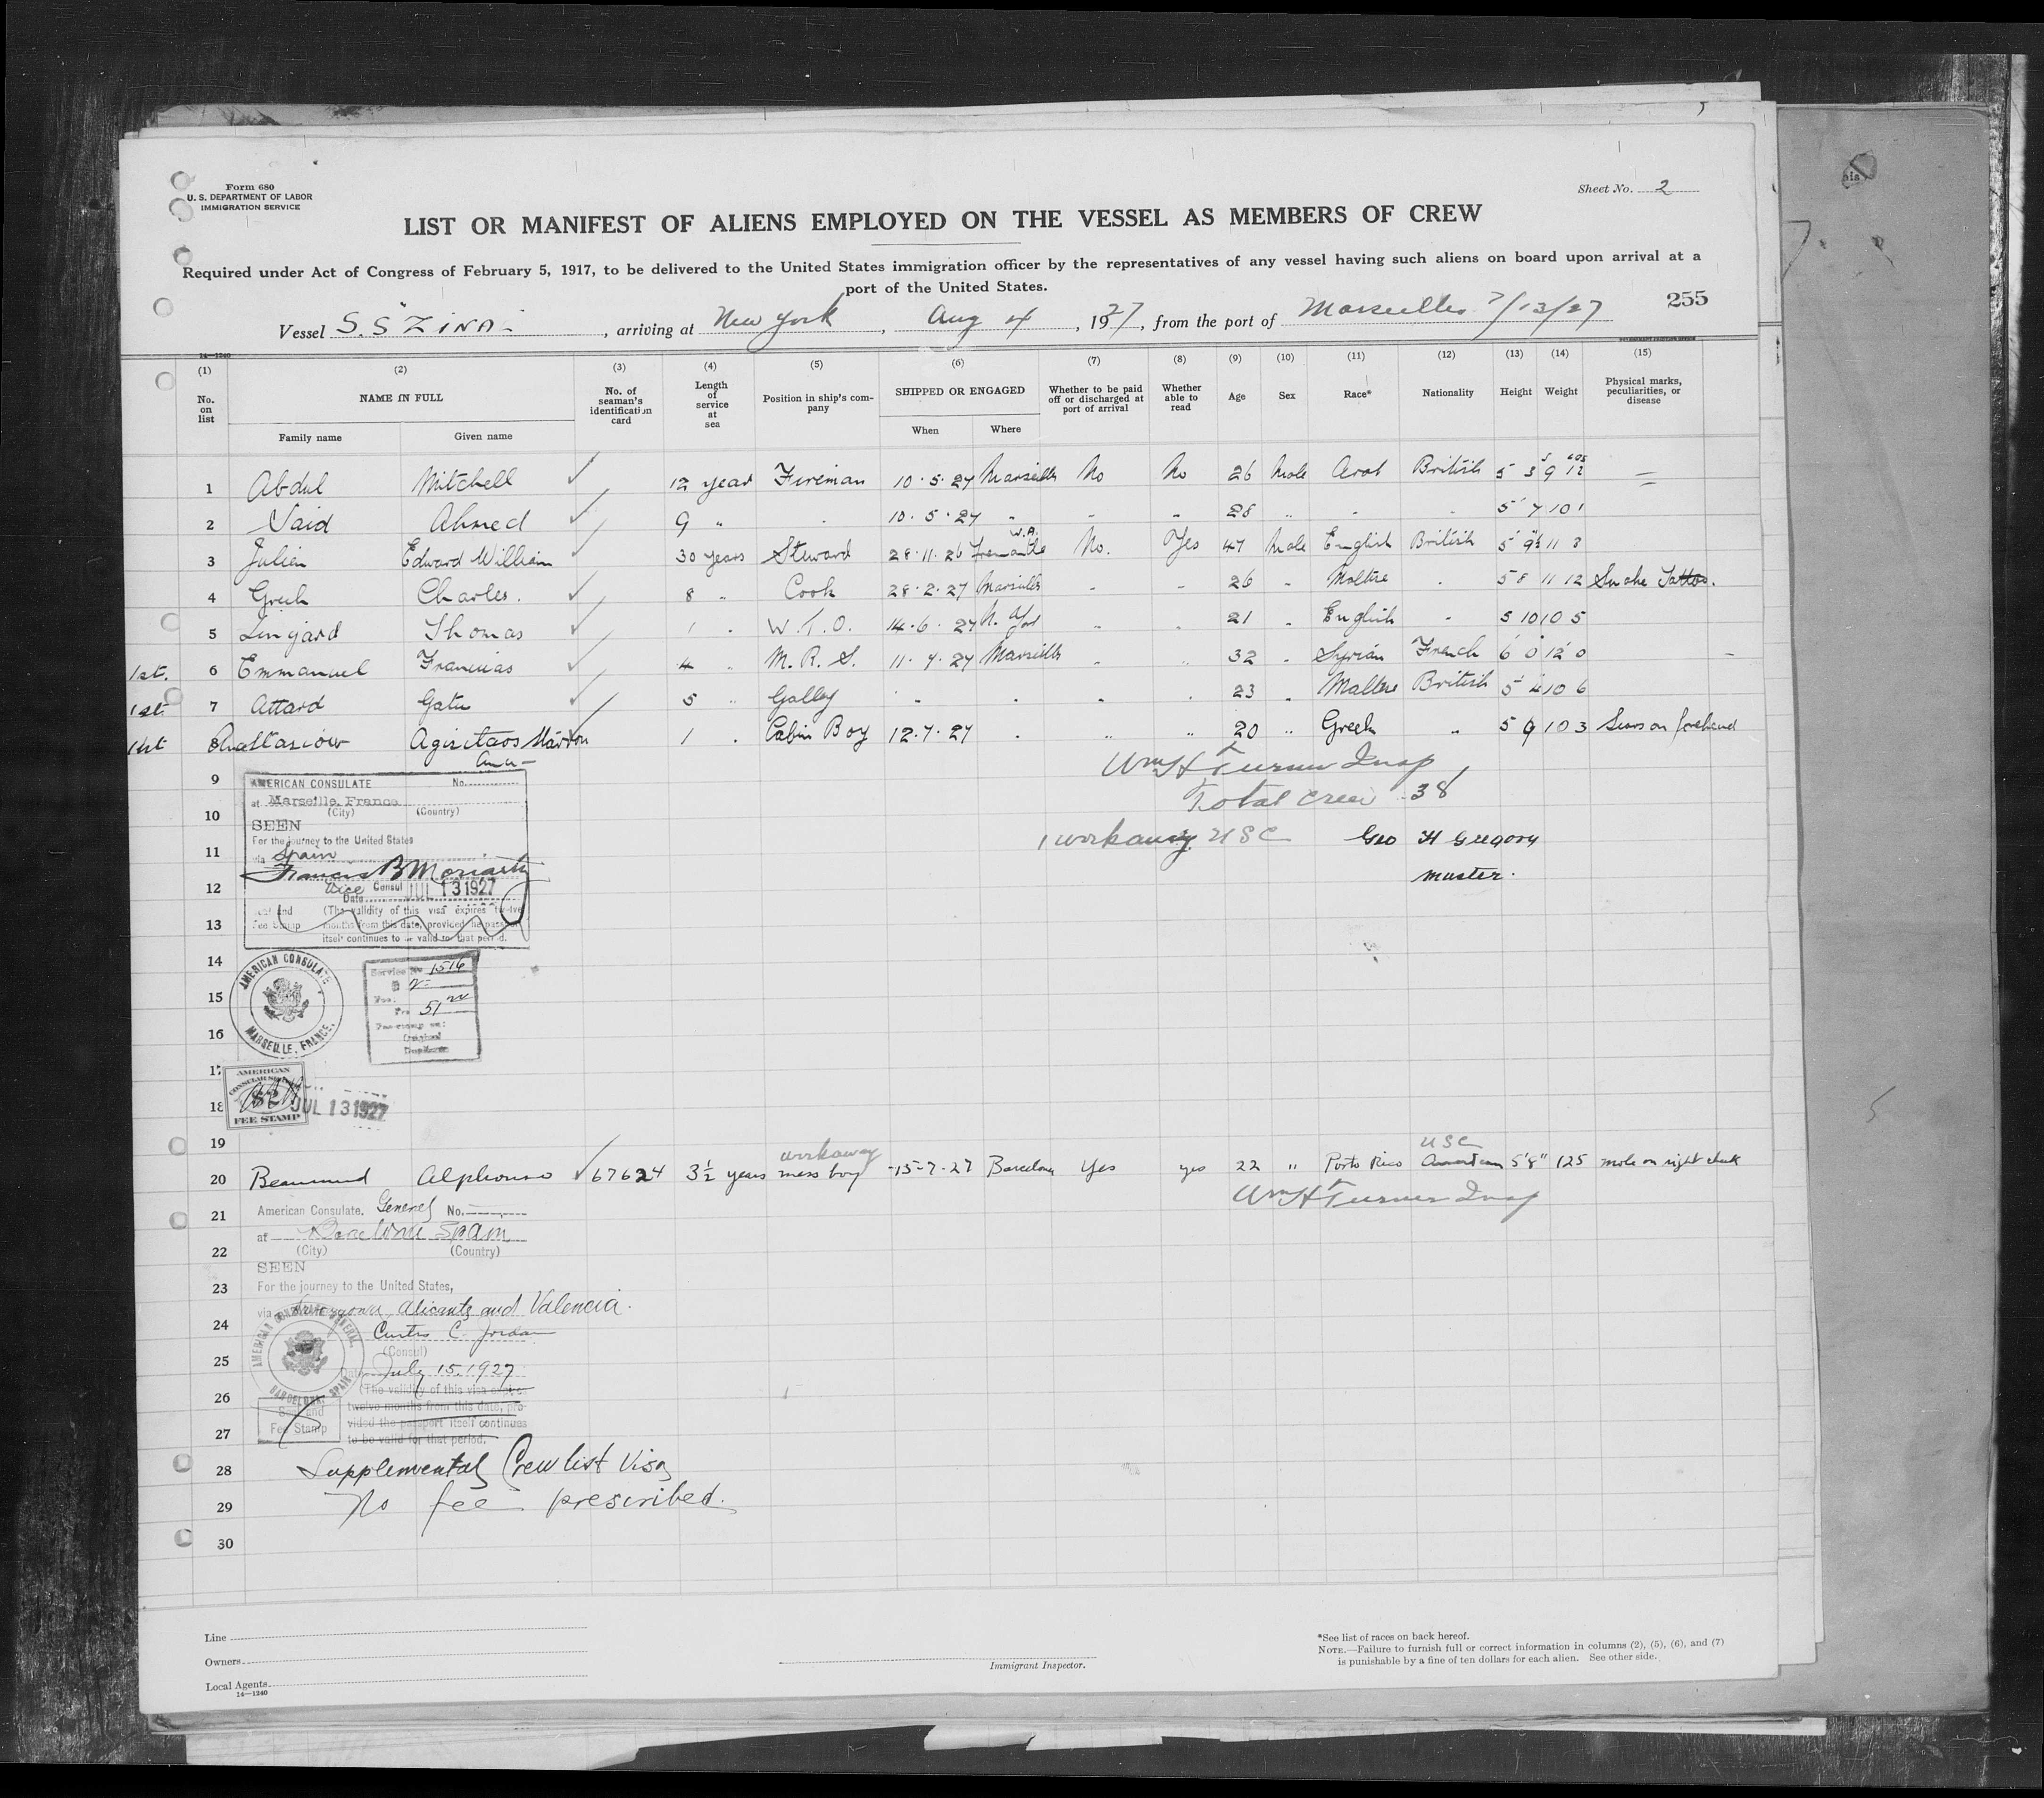 Form 680
U. S. DEPARTMENT OF LABOR
IMMIGRATION SERVICE
Sheet No. 2
LIST OR MANIFEST OF ALIENS EMPLOYED ON THE VESSEL AS MEMBERS OF CREW
Required under Act of Congress of February 5, 1917, to be delivered to the United States immigration officer by the representatives of any vessel having such aliens on board upon arrival at a
port of the United States.
255
Vessel S.S "ZINA" , arriving at New York , Aug 4 , 1927, from the port of Marseilles 7/13/27
14—1240
(1) (2) (3) (4) (5) (6) (7) (8) (9) (10) (11) (12) (13) (14) (15)
No. on list NAME IN FULL No. of seaman's identification card Length of service at sea Position in ship's company SHIPPED OR ENGAGED Whether to be paid off or discharged at port of arrival Whether able to read Age Sex Race* Nationality Height Weight Physical marks, peculiarities, or disease
Family name Given name When Where
1 Abdul Mitchell ✓ 12 year Fireman 10.5.27 Marseilles No No 26 Male Arab British 5 3 9 12
2 Said Ahmed ✓ 9 " 10.5.27 " " " 28 " " " 5 7 10 1
3 Julien Edward William ✓ 30 years Steward 28.11.26 Fremantle W.A. No. Yes 47 Male English British 5 9½ 11 3
4 Grech Charles. ✓ 8 " Cook 28.2.27 Marseilles " " 26 " Maltese " 5 8 11 12 Snake Tattoo.
5 Lingard Thomas ✓ 1 " W.T.O. 14.6.27 N. York " " 21 " English " 5 10 10 5
1st. 6 Emmanuel ✓ 4 " M.R.S. 11.7.27 Marseilles " " 32 " Syrian French 6 0 12 0
1st 7 Attard ✓ 5 " Galley " " " " 23 " Maltese British 5 4 10 6
1st 8 ✓ 1 " Cabin Boy 12.7.27 " " " 20 " Greek " 5 9 10 3 Scars on forehead
Wm H Turner Insp
9
AMERICAN CONSULATE No.
at Marseille, France
(City) (Country)
Total crew 38
10
SEEN
For the journey to the United States
1 workaway USC Geo H Gregory
11
via Spain
Francis B Moriarty
master.
12
Vice Consul
Date JUL 13 1927
(The validity of this visa expires twelve
13
months from this date, provided the passport
itself continues to be valid for that period.
14
AMERICAN CONSULATE
MARSEILLE, FRANCE.
Service No 1516
15
Fee:
16
17
AMERICAN
CONSULAR SERVICE
FEE STAMP
18
JUL 13 1927
19
workaway
USC
20 Beaumond Alphonso ✓ 67624 3½ years mess boy 15-7-27 Barcelona Yes yes 22 " Porto Rico American 5'8" 125 mole on right cheek
Wm H Turner Insp
21
American Consulate. General No.
at Barcelona Spain
22
(City) (Country)
SEEN
23
For the journey to the United States,
via Tarragona, Alicante and Valencia.
24
Curtis C. Jordan
(Consul)
25
July 15, 1927
AMERICAN CONSULATE GENERAL
BARCELONA, SPAIN
26
(The validity of this visa expires
twelve months from this date, pro-
vided the passport itself continues
to be valid for that period.
Seal and
Fee Stamp
27
28
Supplemental Crew list Visa
29
No fee prescribed.
30
Line
Owners
Local Agents
14—1240
Immigrant Inspector.
*See list of races on back hereof.
NOTE.—Failure to furnish full or correct information in columns (2), (5), (6), and (7)
is punishable by a fine of ten dollars for each alien. See other side.